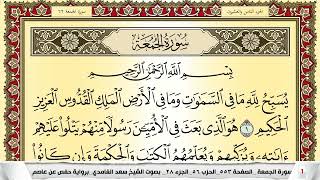 سُورَةُ الْجُمُعَةِ
بِسْمِ اللَّهِ الرَّحْمَٰنِ الرَّحِيمِ
يُسَبِّحُ لِلَّهِ مَا فِي السَّمَاوَاتِ وَمَا فِي الْأَرْضِ الْمَلِكِ الْقُدُّوسِ الْعَزِيزِ
الْحَكِيمِ ١ هُوَ الَّذِي بَعَثَ فِي الْأُمِّيِّينَ رَسُولًا مِنْهُمْ يَتْلُوا عَلَيْهِمْ
ءَايَاتِهِ وَيُزَكِّيهِمْ وَيُعَلِّمُهُمُ الْكِتَابَ وَالْحِكْمَةَ وَإِنْ كَانُوا
1 سورة الجمعة . الصفحة ٥٥٣ . الحزب ٥٦ . الجزء ٢٨ . بصوت الشيخ سعد الغامدي . برواية حفص عن عاصم